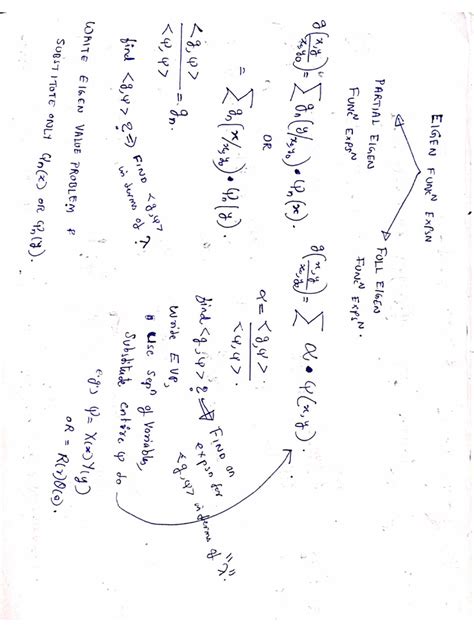 EIGEN FUNCᴺ EXPSN
PARTIAL EIGEN
FUNCᴺ EXPSᴺ.
g(x,y/x₀,y₀) = ∑ gₙ(y/x₀,y₀) • φₙ(x).
OR
= ∑ gₙ(x/x₀,y₀) • φₙ(y).
<g,φ>/<φ,φ> = gₙ.
find <g,φ> ⇒ FIND <g,φ>
in terms of λ.
WRITE EIGEN VALUE PROBLEM &
SUBSTITUTE ONLY φₙ(x) OR φₙ(y).
FULL EIGEN
FUNCᴺ EXPSᴺ.
g(x,y/x₀,y₀) = ∑ α • ψ(x,y).
α = <g,ψ>/<ψ,ψ>.
find <g,ψ> ⇒ FIND an
expsn for
<g,ψ> in terms of "λ".
Write EVP,
Use Sepⁿ of Variables,
Substitute entire ψ do
e.g., ψ = X(x)Y(y)
OR = R(r)Θ(θ).